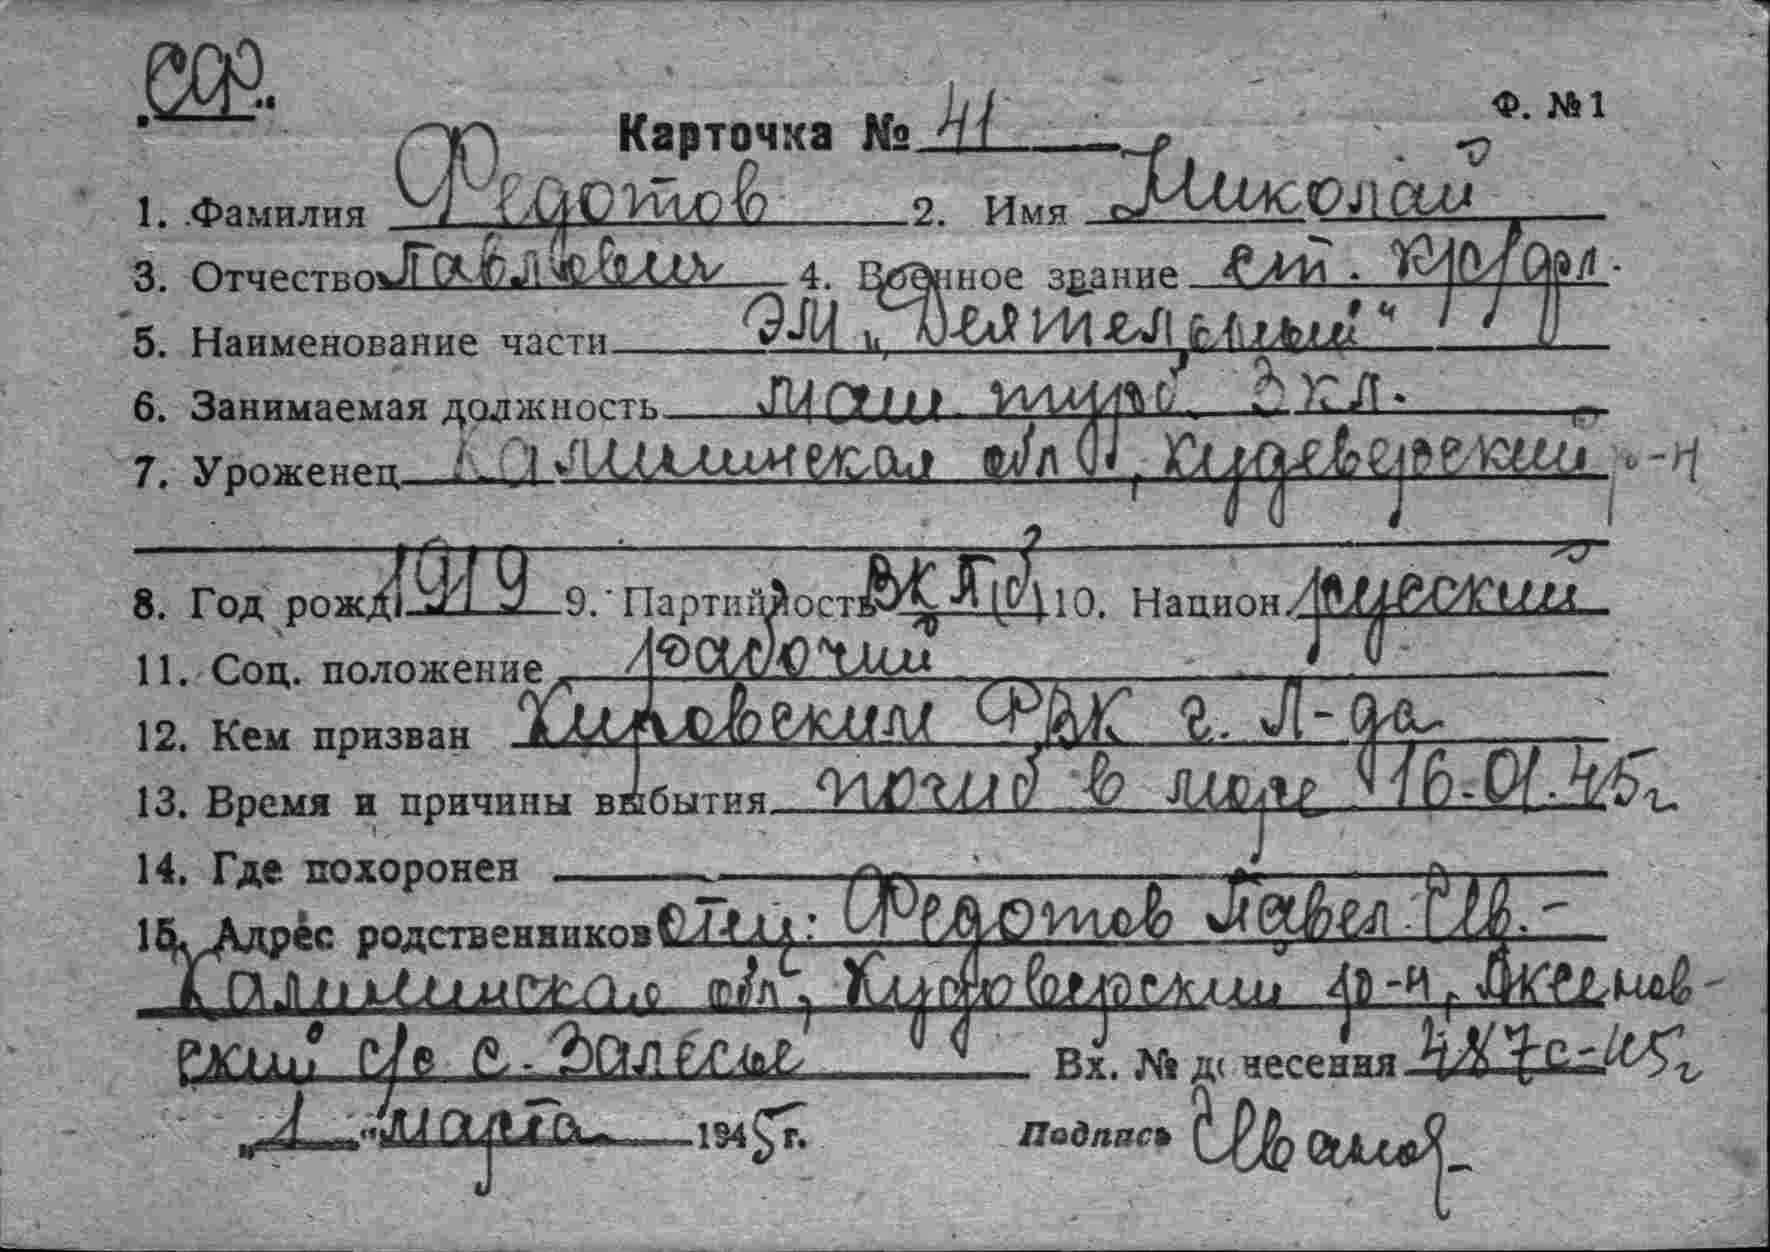 „СФ"
Ф. №1
Карточка № 41
1. Фамилия Федотов 2. Имя Николай
3. Отчество Павлович 4. Военное звание ст. кр/фл.
5. Наименование части ЭМ „Деятельный"
6. Занимаемая должность маш турб. 3 кл.
7. Уроженец Калининская обл, Кудеверский р-н
8. Год рожд. 1919 9. Партийность ВКП(б) 10. Национ. русский
11. Соц. положение рабочий
12. Кем призван Кировским РВК г. Л-да
13. Время и причины выбытия погиб в море 16.01.45г
14. Где похоронен
15. Адрес родственников отец: Федотов Павел Ив. –
Калининская обл, Кудоверский р-н, Аксенов-
ский с/с с. Залесье Вх. № донесения 487с-45г
„1" марта 1945 г. Подпись Иванов